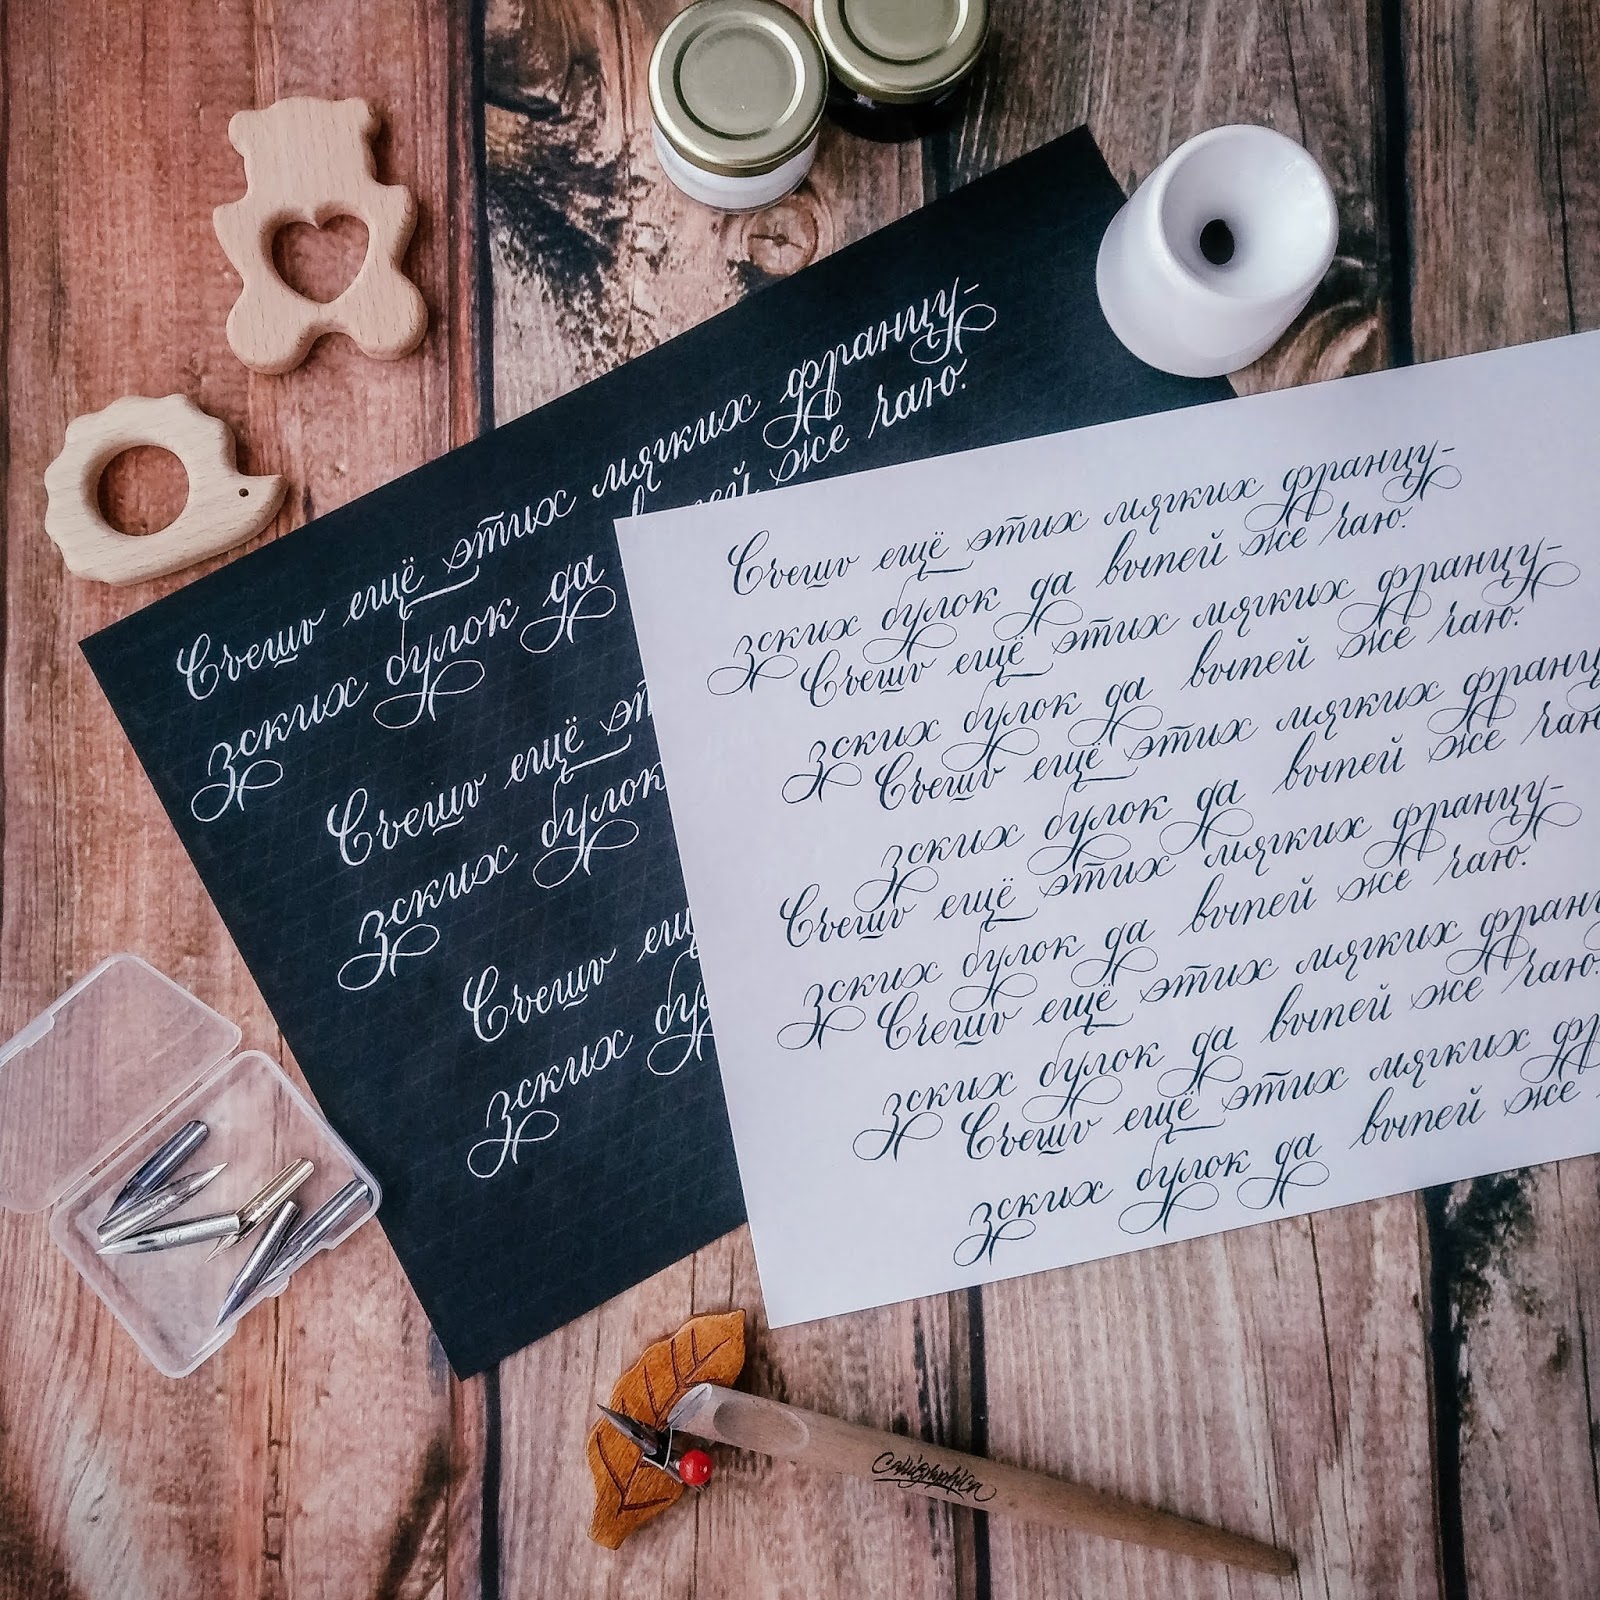 Съешь ещё этих мягких францу-
зских булок да выпей же чаю.
Съешь ещё эт
зских булок
Съешь ещ
зских бу
Съешь ещё этих мягких францу-
зских булок да выпей же чаю.
Съешь ещё этих мягких францу-
зских булок да выпей же чаю.
Съешь ещё этих мягких франц
зских булок да выпей же чаю
Съешь ещё этих мягких францу-
зских булок да выпей же чаю.
Съешь ещё этих мягких франц
зских булок да выпей же чаю.
Съешь ещё этих мягких фр
зских булок да выпей же
Calligraphica